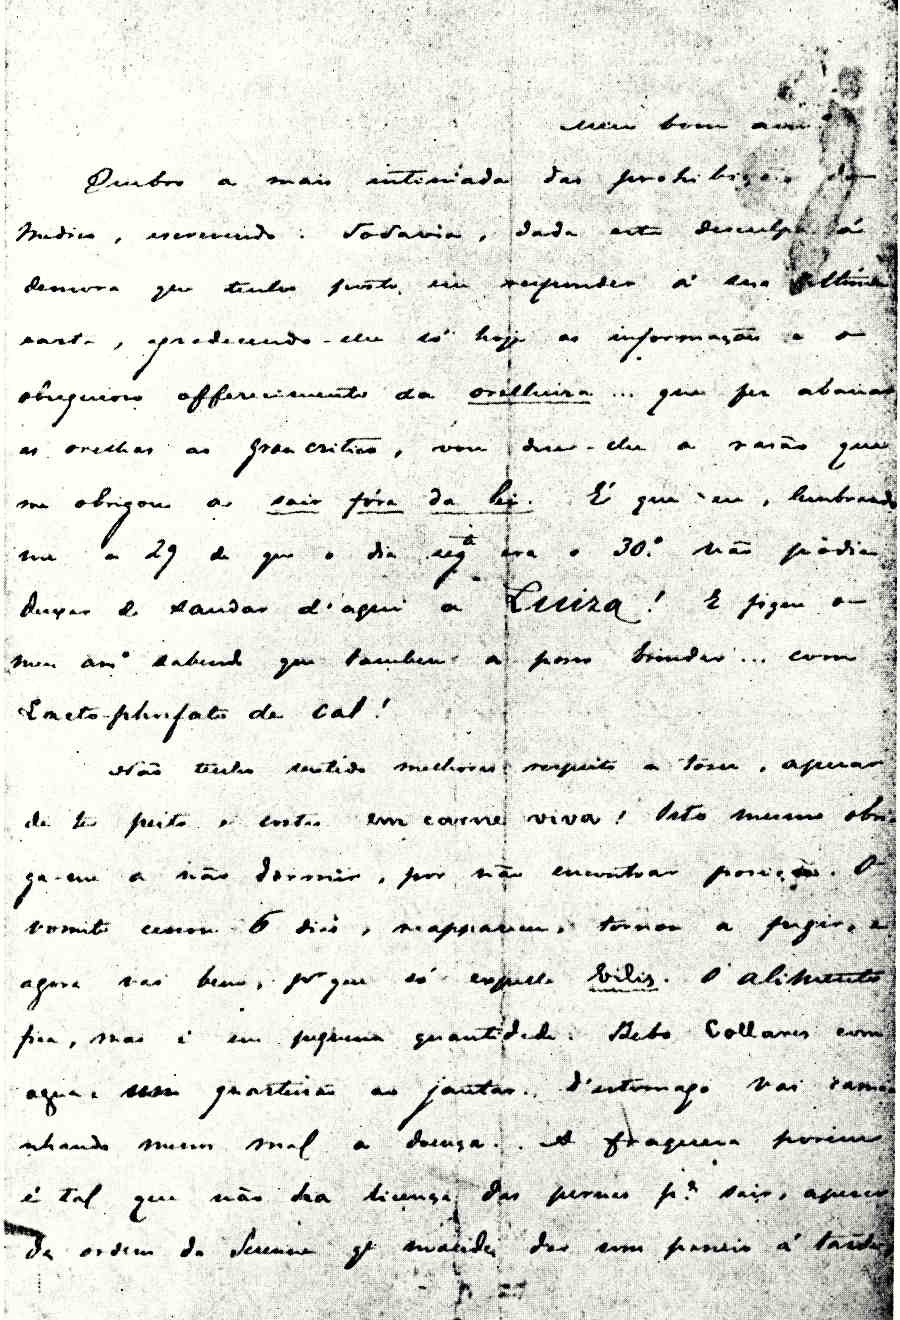 Meu bom amº
Quebro a mais intimada das prohibições do
Medico, escrevendo. Todavia, dada esta desculpa á
demora que tenho posto em responder á sua ultima
carta, agradecendo-lhe só hoje as informações e o
obsequioso offerecimento da orelheira ... que fez abanar
as orelhas ao Gran critico, vou dizer-lhe a rasão que
me obrigou a sair fóra da lei. É que eu, lembrando
me a 29 de que o dia segte era o 30º não podia
deixar de saudar d'aqui a Luiza! E fiquem o
meu amº sabendo que tambem a posso brindar ... com
Lacto-phosfato de cal!
Não tenho sentido melhoras respeito a tosse, apesar
de ter peito e costas em carne viva! Isto mesmo obri-
ga-me a não dormir, por não encontrar posição. O
vomito cessou 6 dias, reappareceu, tornou a fugir, e
agora vai bem, porque só expelle bilis. O alimento
fica, mas é em pequena quantidade. Bebo Collares com
agua: um quarteirão ao jantar. D'estomago vai cami-
nhando menos mal a doença. A fraqueza porem
é tal que não dá licença das pernas pª sair, apesar
da ordem do Serenno qe manda dar um passeio á tarde,